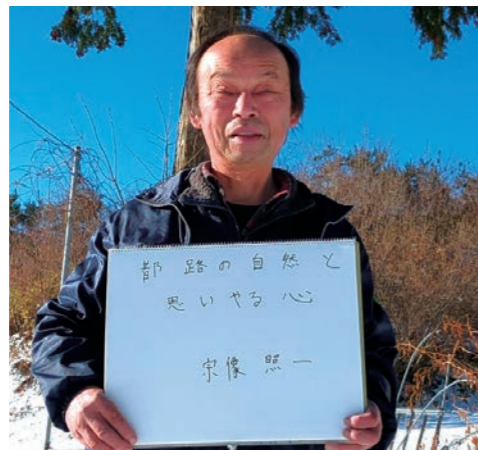 都路の自然と
思いやる心
宗像照一